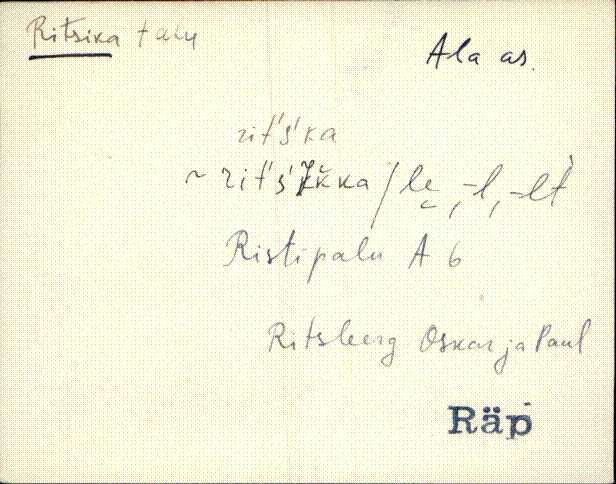 Ritsika talu
Ala as.
rit's'ka
~ rit's'ĭkka / le̬, -l, -lt
Ristipalu A 6
Ritsberg Oskar ja Paul
Räp